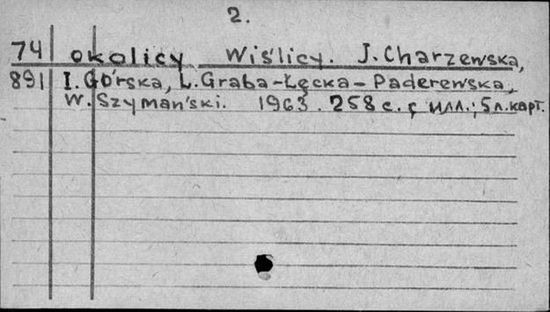 2.
74 okolicy Wiślicy. J. Charzewska,
891 I. Górska, L. Graba-Łęcka-Paderewska,
W. Szymański. 1963. 258 с. с илл.; 5 л. карт.